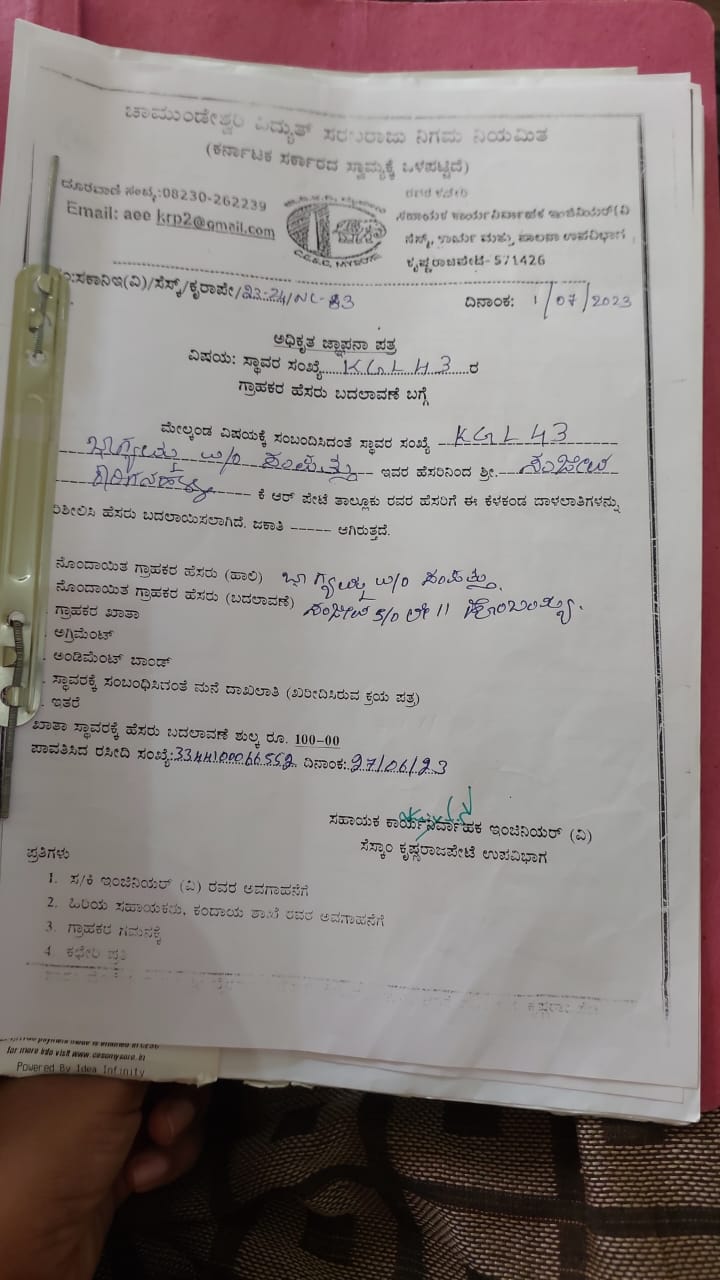 ಚಾಮುಂಡೇಶ್ವರಿ ವಿದ್ಯುತ್ ಸರಬರಾಜು ನಿಗಮ ನಿಯಮಿತ
(ಕರ್ನಾಟಕ ಸರ್ಕಾರದ ಸ್ವಾಮ್ಯಕ್ಕೆ ಒಳಪಟ್ಟಿದೆ)
ದೂರವಾಣಿ ಸಂಖ್ಯೆ:08230-262239
Email: aee krp2@gmail.com
C.E.S.C, MYSORE
ಸಹಾಯಕ ಕಾರ್ಯನಿರ್ವಾಹಕ ಇಂಜಿನಿಯರ್(ವಿ
ಸೆಸ್ಕ್, ಕಾರ್ಯ ಮತ್ತು ಪಾಲನಾ ಉಪವಿಭಾಗ,
ಕೃಷ್ಣರಾಜಪೇಟೆ- 571426
:ಸಕಾನಿಇ(ವಿ)/ಸೆಸ್ಕ್/ಕೃರಾಪೇ/23-24/NC-83 ದಿನಾಂಕ: 1/07/2023
ಅಧಿಕೃತ ಜ್ಞಾಪನಾ ಪತ್ರ
ವಿಷಯ: ಸ್ಥಾವರ ಸಂಖ್ಯೆ KGL 43 ರ
ಗ್ರಾಹಕರ ಹೆಸರು ಬದಲಾವಣೆ ಬಗ್ಗೆ
ಮೇಲ್ಕಂಡ ವಿಷಯಕ್ಕೆ ಸಂಬಂದಿಸಿದಂತೆ ಸ್ಥಾವರ ಸಂಖ್ಯೆ KGL 43
ಭಾಗ್ಯಮ್ಮ w/o ಇವರ ಹೆಸರಿನಿಂದ ಶ್ರೀ.
ಕೆ ಆರ್ ಪೇಟೆ ತಾಲ್ಲೂಕು ರವರ ಹೆಸರಿಗೆ ಈ ಕೆಳಕಂಡ ದಾಳಲಾತಿಗಳನ್ನು
ರಿಶೀಲಿಸಿ ಹೆಸರು ಬದಲಾಯಿಸಲಾಗಿದೆ. ಜಕಾತಿ ----- ಆಗಿರುತ್ತದೆ.
ನೊಂದಾಯಿತ ಗ್ರಾಹಕರ ಹೆಸರು (ಹಾಲಿ) ಭಾಗ್ಯಮ್ಮ w/o
ನೊಂದಾಯಿತ ಗ್ರಾಹಕರ ಹೆಸರು (ಬದಲಾವಣೆ) S/O ಲೇ ||
ಗ್ರಾಹಕರ ಖಾತಾ
. ಅಗ್ರಿಮೆಂಟ್
. ಅಂಡಿಮೆಂಟ್ ಬಾಂಡ್
. ಸ್ಥಾವರಕ್ಕೆ ಸಂಬಂಧಿಸಿದಂತೆ ಮನೆ ದಾಖಲಾತಿ (ಖರೀದಿಸಿರುವ ಕ್ರಯ ಪತ್ರ)
. ಇತರೆ
ಖಾತಾ ಸ್ಥಾವರಕ್ಕೆ ಹೆಸರು ಬದಲಾವಣೆ ಶುಲ್ಕ ರೂ. 100-00
ಪಾವತಿಸಿದ ರಸೀದಿ ಸಂಖ್ಯೆ:3344100066552 ದಿನಾಂಕ:27/06/23
ಸಹಾಯಕ ಕಾರ್ಯನಿರ್ವಾಹಕ ಇಂಜಿನಿಯರ್ (ವಿ)
ಸೆಸ್ಕಾಂ ಕೃಷ್ಣರಾಜಪೇಟೆ ಉಪವಿಭಾಗ
ಪ್ರತಿಗಳು
1. ಸ/ಕಿ ಇಂಜಿನಿಯರ್ (ವಿ) ರವರ ಅವಗಾಹನೆಗೆ
2. ಹಿರಿಯ ಸಹಾಯಕರು, ಕಂದಾಯ ಶಾಖೆ ರವರ ಅವಗಾಹನೆಗೆ
3. ಗ್ರಾಹಕರ ಗಮನಕ್ಕೆ
4 ಕಛೇರಿ ಪ್ರತಿ
for more info visit www.cescmysore.in
Powered By Idea Infinity